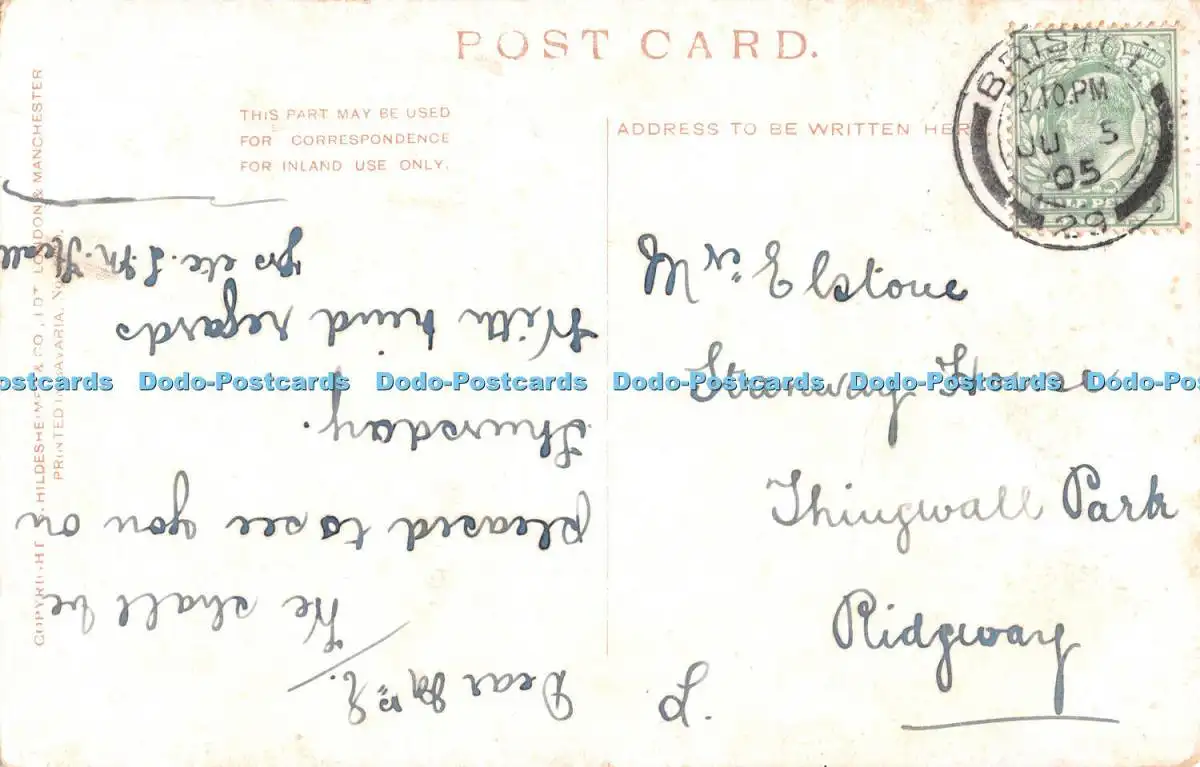 POST CARD.
THIS PART MAY BE USED
FOR CORRESPONDENCE
FOR INLAND USE ONLY.
ADDRESS TO BE WRITTEN HERE.
BRISTOL
2.10.PM
JU 5
05
29
HALF PENNY
Mrs Elstone
Stanway House
Thingwall Park
Ridgway
L.
Dear Mrs E.
We shall be
pleased to see you on
Thursday.
With kind regards
yrs etc.
COPYRIGHT. HILDESHEIMER & CO. LTD. LONDON & MANCHESTER
PRINTED IN BAVARIA. No.
Dodo-Postcards Dodo-Postcards Dodo-Postcards Dodo-Postcards Dodo-Postcards Dodo-Postcards